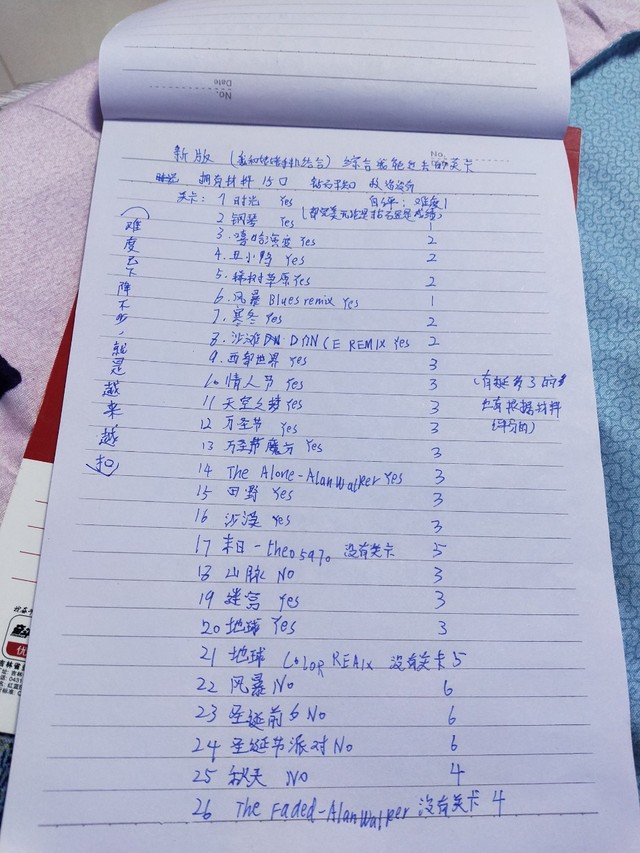 No.
Date
No.
新版 (我和姥姥手机结合) 综合起来过去的关卡
拥有材料 15口 钻石
关卡: 1 时光 Yes 自评: 难度 1
2 钢琴 Yes 1
3. 嘻哈 Yes 2
4. 丑小鸭 Yes 2
5. 树草原 Yes 2
6. 风暴 Blues remix Yes 1
7. 寒冬 Yes 2
8. 沙滩 DANCE REMIX Yes 2
9. 西部世界 Yes 3
10 情人节 Yes 3
11 天空之梦 Yes 3
12 万圣节 Yes 3
13 万圣节魔方 Yes 3
14 The Alone-Alan Walker Yes 3
15 田野 Yes 3
16 沙漠 Yes 3
17 末日-theo5970 没有关卡 5
18 山脉 No 3
19 迷宫 Yes 3
20 地球 Yes 3
21 地球 COLOR REAIX 没有关卡 5
22 风暴 No 6
23 圣诞前夕 No 6
24 圣诞节派对 No 6
25 秋天 No 4
26 The Faded-Alan Walker 没有关卡 4
(难度下降不少,就是越来越扣)
(有挺多3的
也有根据材料
评分的)
吉林省
优